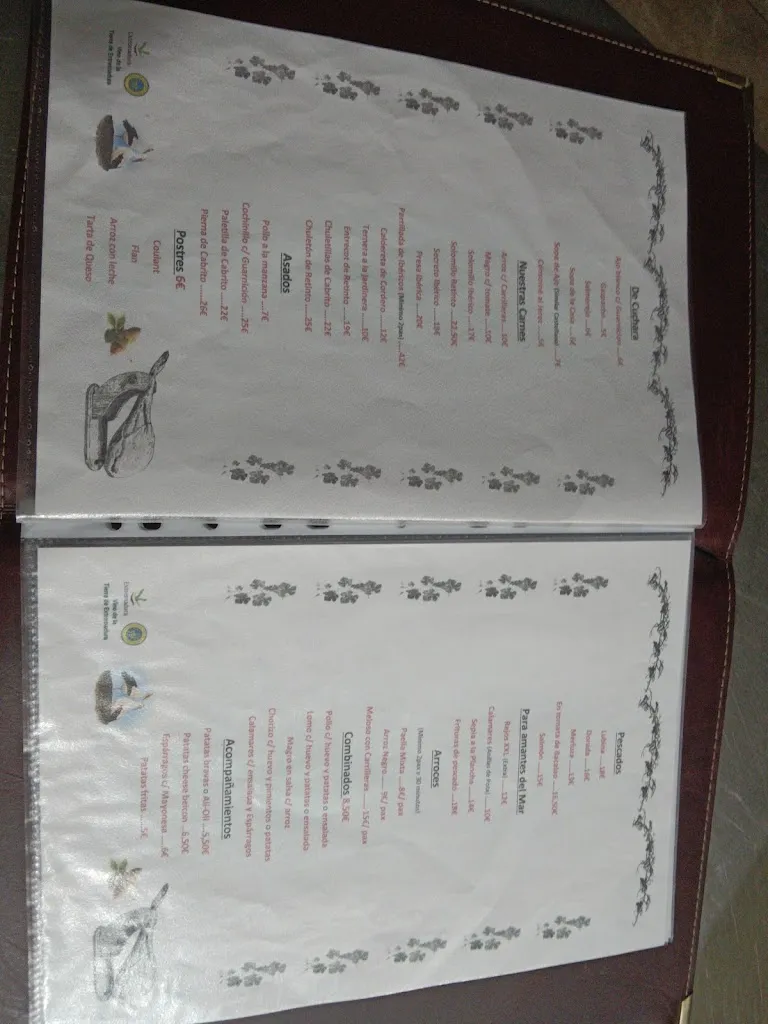 De Cuchara
Ajo blanco c/ Guarnición ......6€
Gazpacho.....5€
Salmorejo .....6€
Sopa de la Casa .....6€
Sopa de Ajo ...... 7€
Calamares al Jerez .....5€
Nuestras Carnes
Arroz c/ Carrilleras .....10€
Magro c/ tomate .....10€
Solomillo Ibérico .....17€
Solomillo Retinto .....22,50€
Secreto Ibérico .....15€
Presa Ibérica .....20€
Parrillada de Ibéricos (Mínimo 2pax) .....42€
Caldereta de Cordero .....12€
Ternera a la Jardinera .....10€
Entrecot de Retinto .....19€
Chuletillas de Cabrito .....22€
Chuletón de Retinto .....25€
Asados
Pollo a la manzana .....7€
Cochinillo c/ Guarnición .....25€
Paletilla de Cabrito .....22€
Pierna de Cabrito .....26€
Postres 6€
Coulant
Flan
Arroz con leche
Tarta de Queso
Extremadura
Vino de la
Tierra de Extremadura
Pescados
Lubina .....18€
Dorada .....16€
Merluza .....13€
Salmón .....15€
Para amantes del Mar
Calamares (Anillas de Pota) .....10€
Sepia a la Plancha .....14€
Frituras de pescado .....18€
Arroces
(Mínimo 2pax y 30 minutos)
Paella Mixta .....8€/ pax
Arroz Negro..... 9€/ pax
Meloso con Carrilleras ..... 15€/ pax
Combinados 8,50€
Pollo c/ huevo y patatas o ensalada
Lomo c/ huevo y patatas o ensalada
Magro en salsa c/ arroz
Chorizo c/ huevo y pimientos o patatas
Calamares c/ ensalada y Espárragos
Acompañamientos
Patatas bravas o Ali-Oli .....5,50€
Panitas cheese beicon .....6,50€
Espárragos c/ Mayonesa .....6€
Patatas fritas.....5€
Extremadura
Vino de la
Tierra de Extremadura